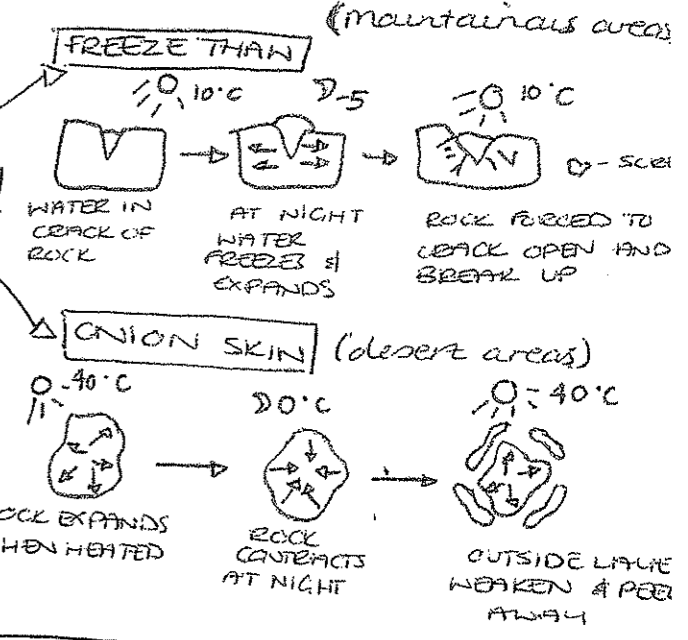 (mountainous areas
FREEZE THAW
10°C
-5
10°C
- SCRE
WATER IN
CRACK OF
ROCK
AT NIGHT
WATER
FREEZES &
EXPANDS
ROCK FORCED TO
CRACK OPEN AND
BREAK UP
ONION SKIN (desert areas)
-40°C
0°C
-40°C
OCK EXPANDS
HEN HEATED
ROCK
CONTRACTS
AT NIGHT
OUTSIDE LAYE
WEAKEN & PEEL
AWAY